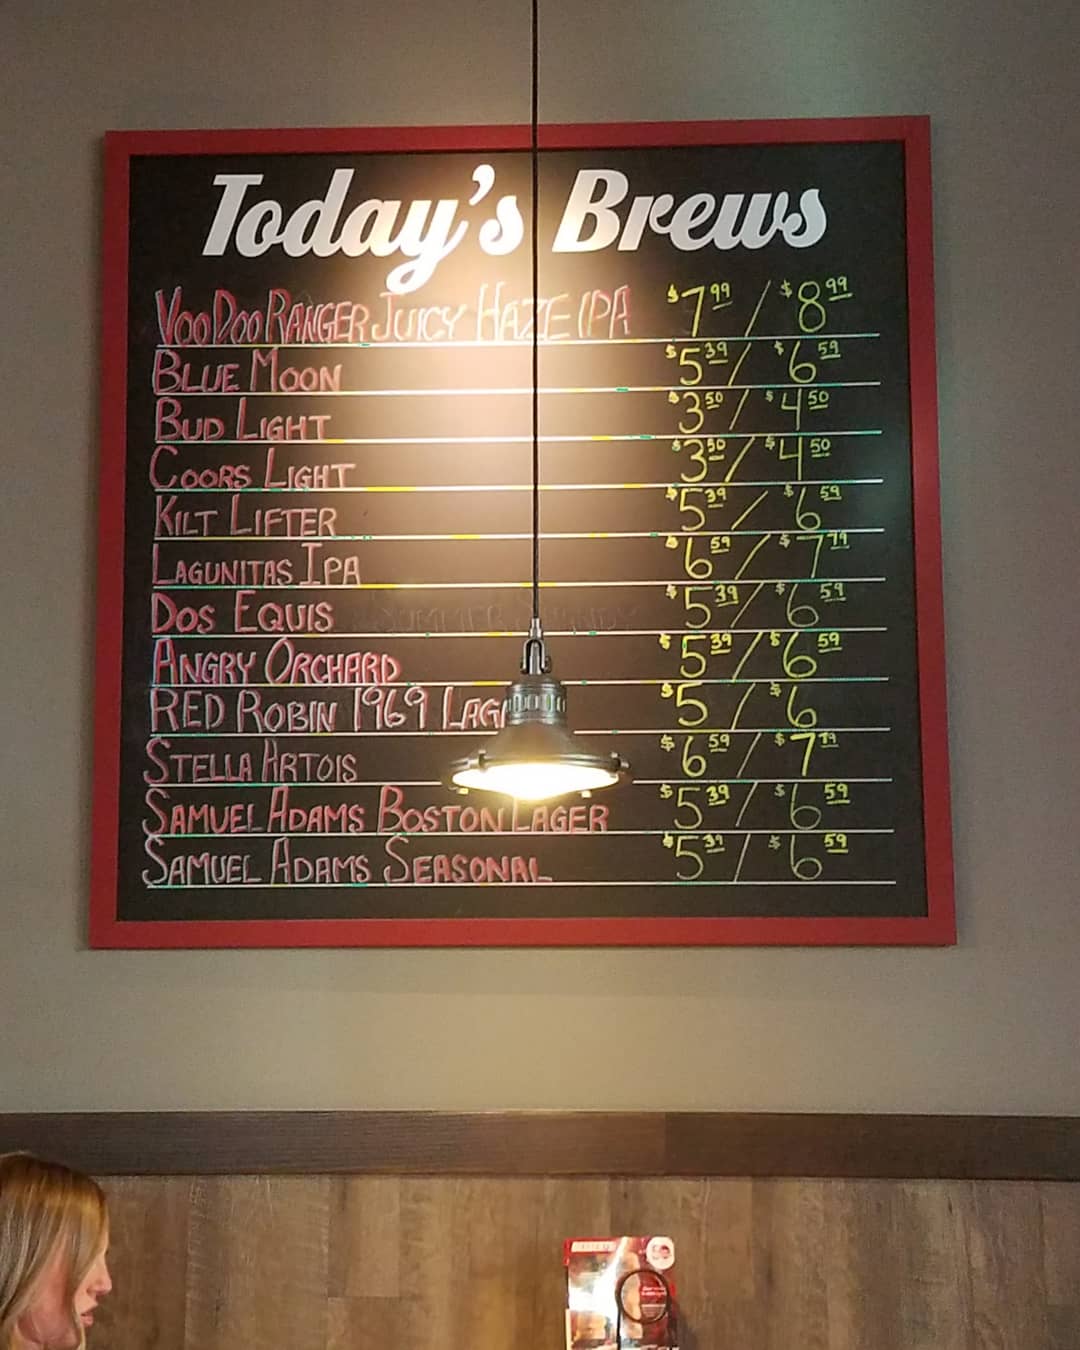 Today's Brews
VooDoo Ranger Juicy Haze IPA $7.99 / $8.99
Blue Moon $5.39 / $6.59
Bud Light $3.50 / $4.50
Coors Light $3.50 / $4.50
Kilt Lifter $5.39 / $6.59
Lagunitas IPA $6.59 / $7.79
Dos Equis $5.39 / $6.59
Angry Orchard $5.39 / $6.59
Red Robin 1969 $5 / $6
Stella Artois $6.59 / $7.79
Samuel Adams Boston Lager $5.39 / $6.59
Samuel Adams Seasonal $5.39 / $6.59